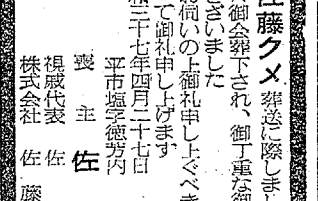 佐藤クメ 葬送に際しまし
御会葬下され、御丁重な御
ざいました
お伺いの上御礼申し上ぐべき
て御礼申し上げます
三十七年四月二十七日
平市塩字徳房内
喪主 佐
親戚代表 佐
株式会社 佐藤